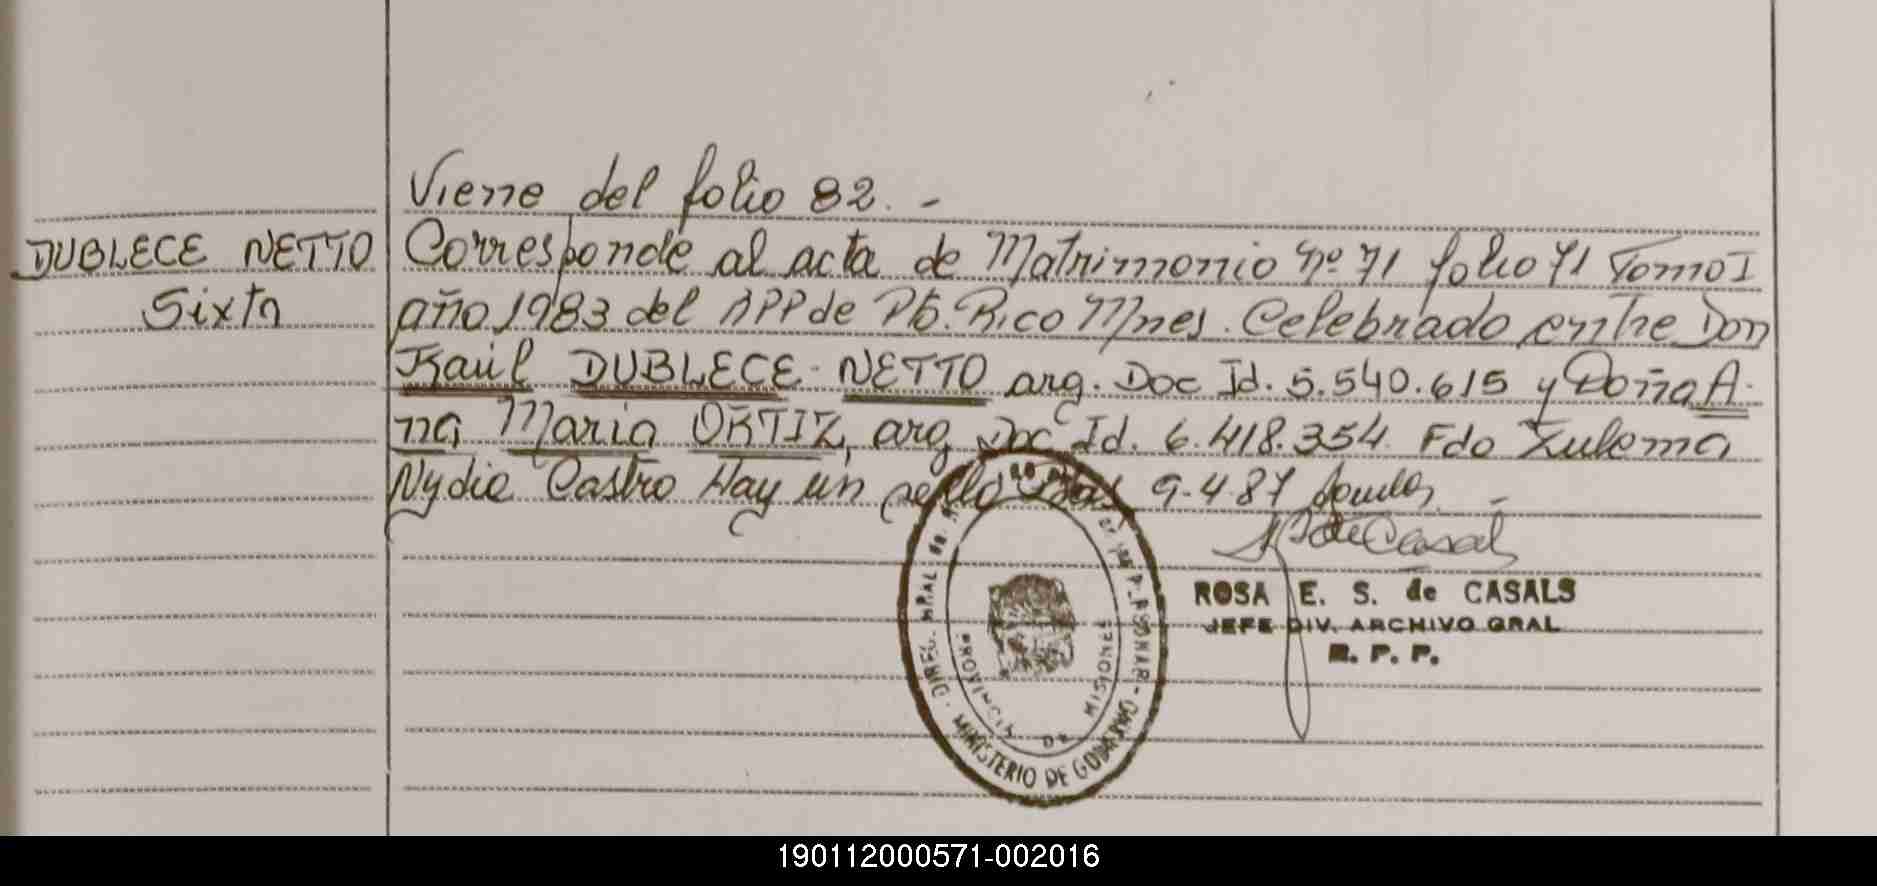 Viene del folio 82. -
DUBLECE NETTO
Sixta
Corresponde al acta de Matrimonio Nº 71 folio 71 Tomo I
año 1983 del RPP de Pto. Rico Mnes. Celebrado entre Don
Raúl DUBLECE - NETTO arg. Doc Id. 5.540.615 y Doña A-
na María ORTIZ, arg Doc Id. 6.418.354. Fdo Zulema
Nydia Castro Hay un sello 9-4-87
ROSA E. S. de CASALS
JEFE DIV. ARCHIVO GRAL
R. P. P.
DIREC. GRAL de
MINISTERIO DE GOBIERNO
PROVINCIA DE MISIONES
190112000571-002016